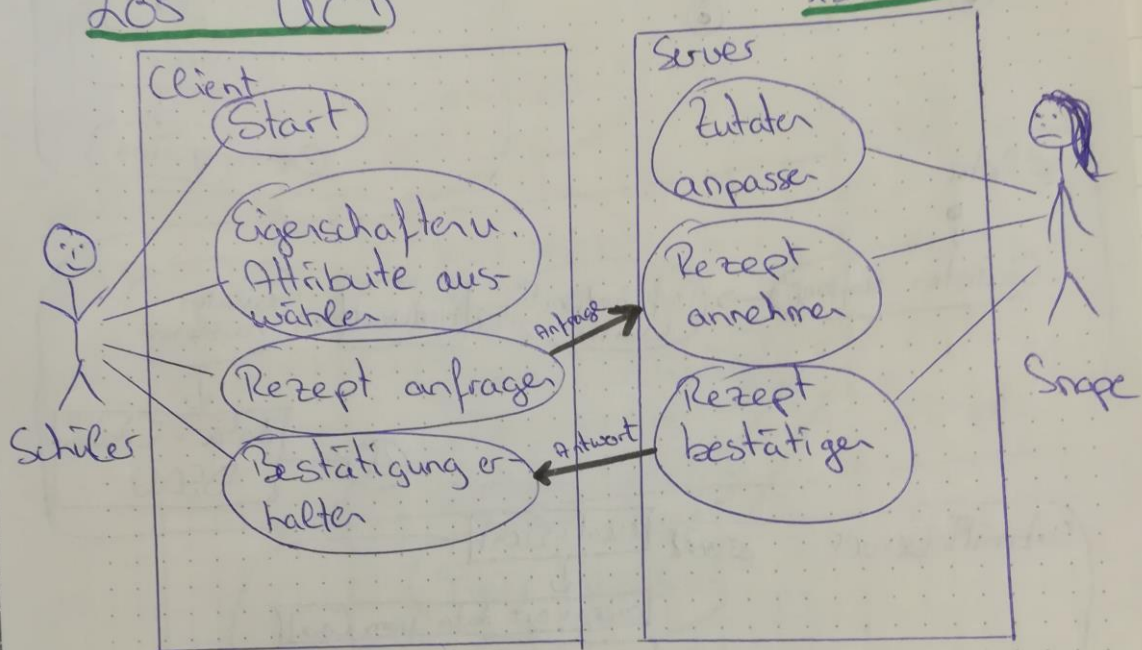 UCD
Client
Start
Eigenschaften u.
Attribute aus-
wählen
Rezept anfragen
Bestätigung er-
halten
Schüler
Anfrage
Antwort
Server
Zutaten
anpassen
Rezept
annehmen
Rezept
bestätigen
Snape